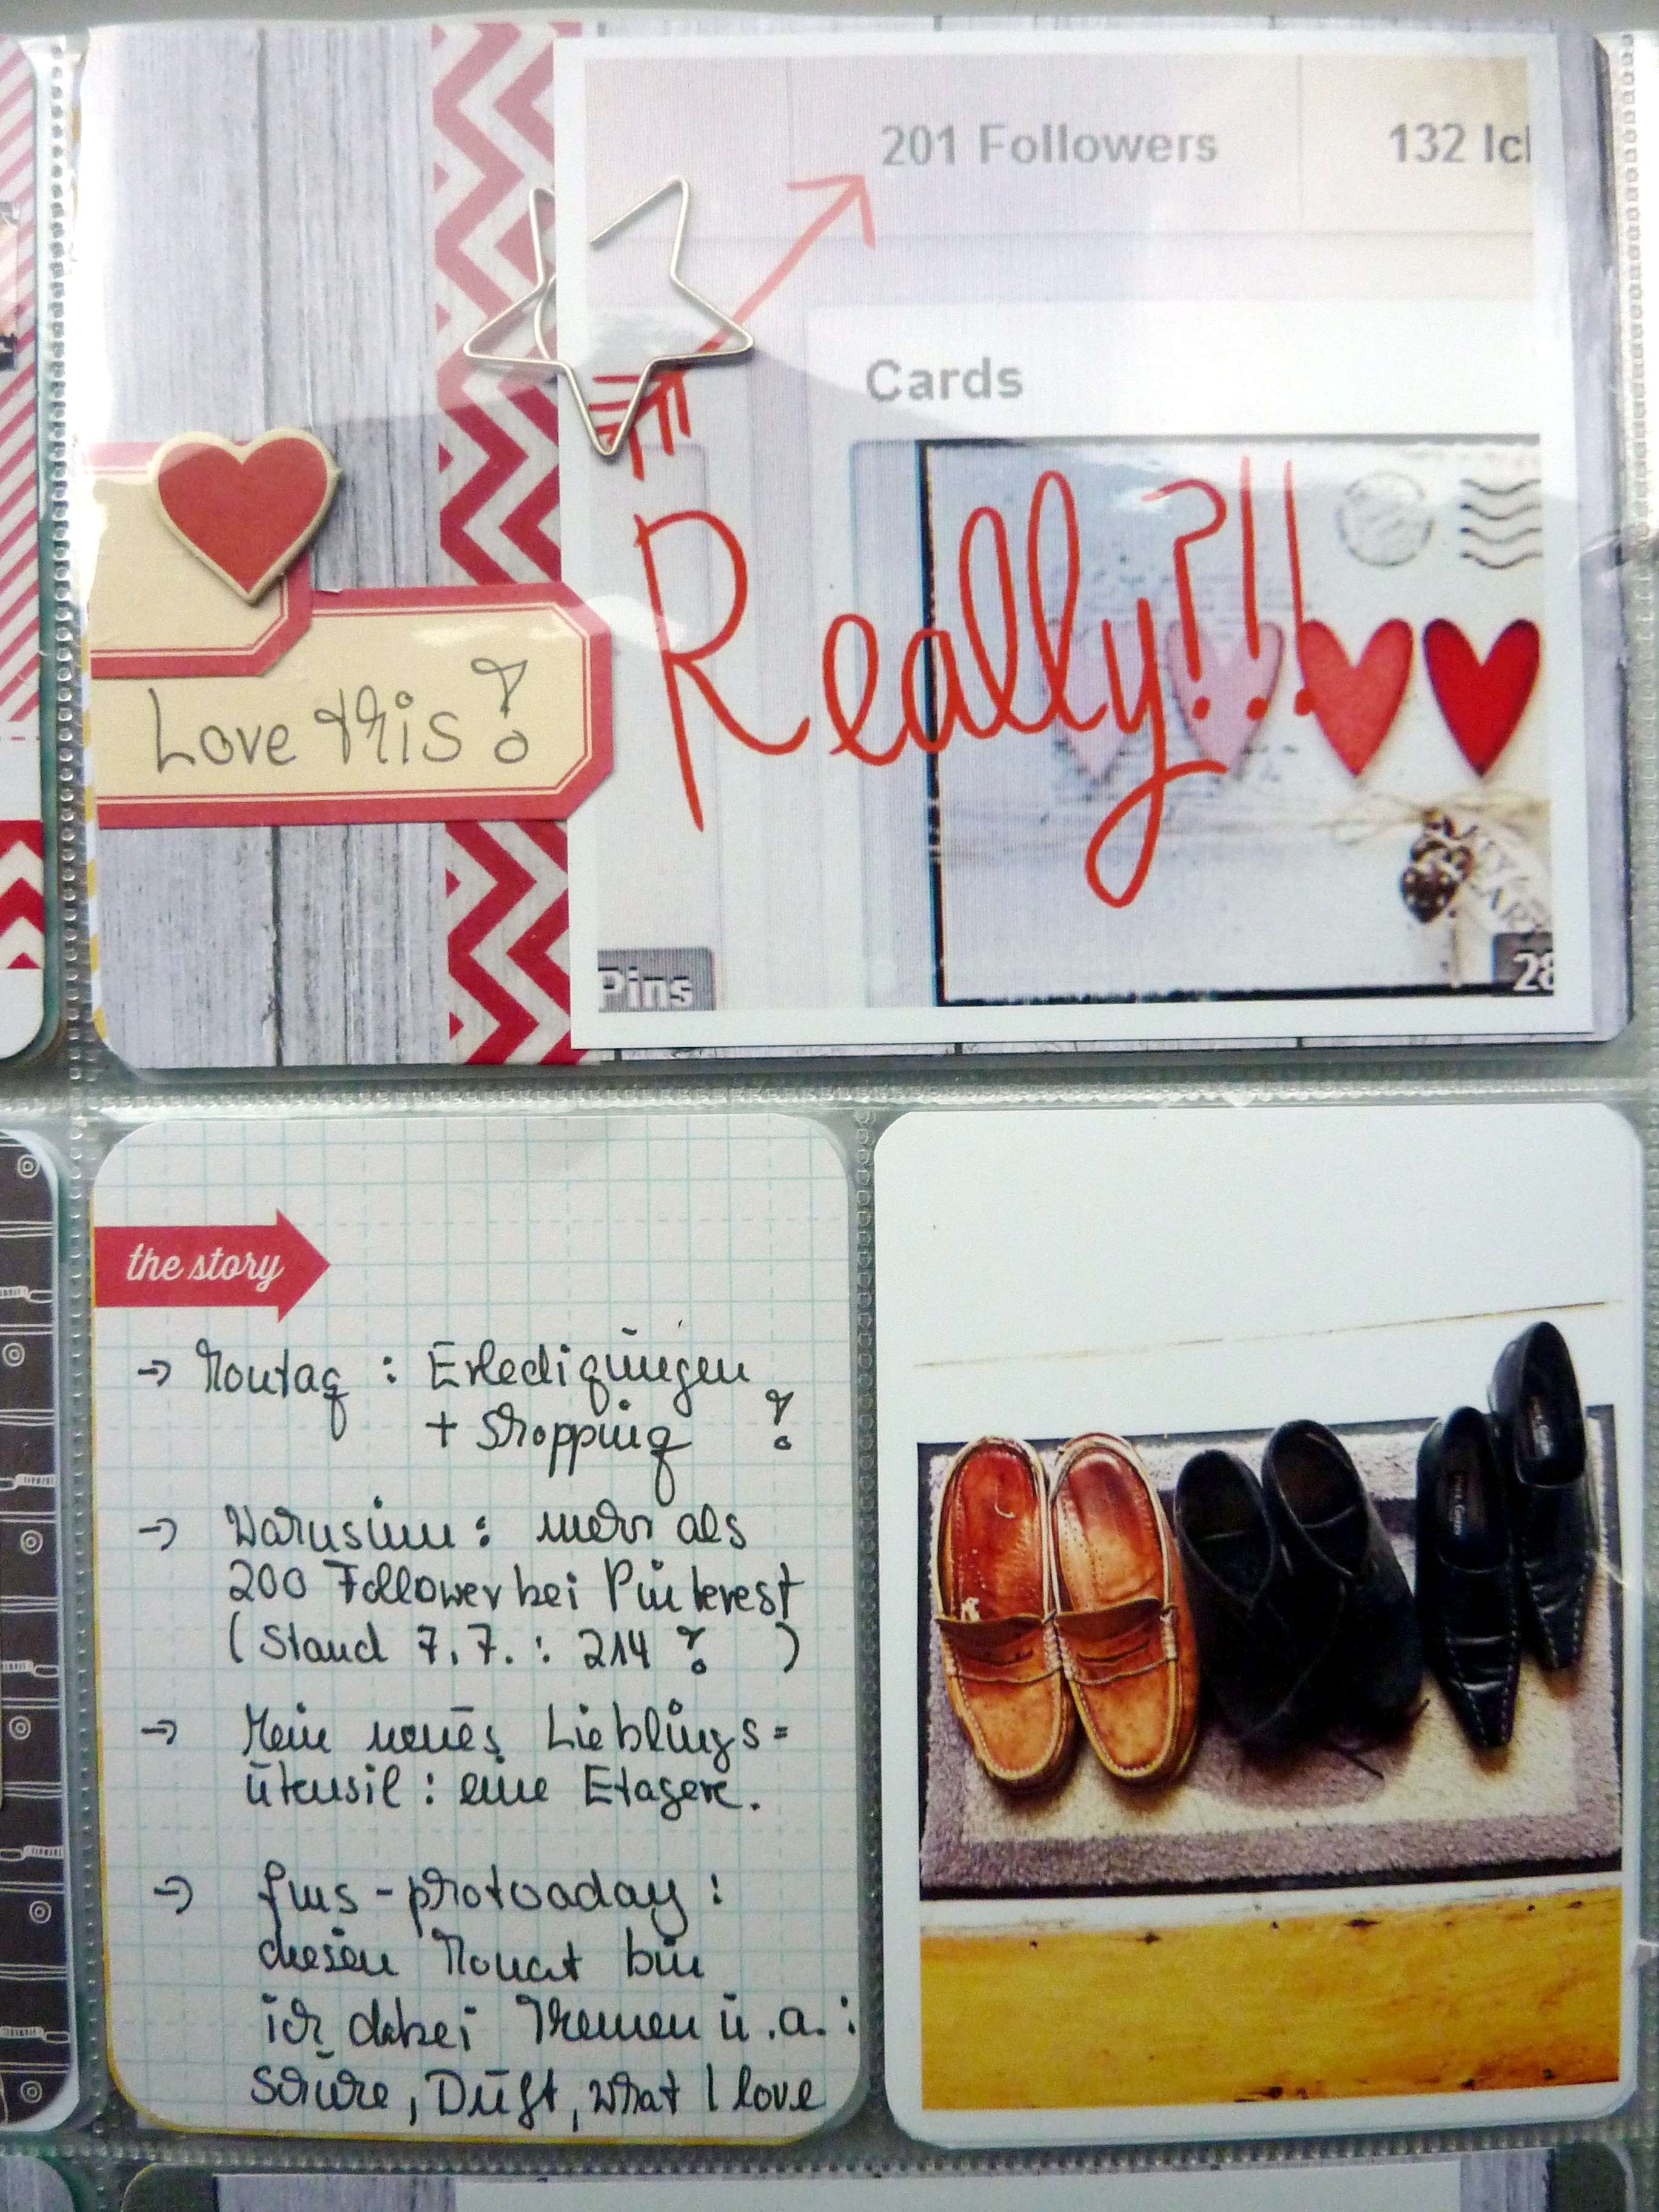 201 Followers
132 Ich
Cards
Really?!!
Love this!
Pins
28
the story
→ Montag : Erledigungen
+ Shopping !
→ Wahnsinn : mehr als
200 Follower bei Pinterest
(Stand 7.7. : 214 ! )
→ Mein neues Lieblings=
utensil : eine Etagere.
→ fms-photoaday :
diesen Monat bin
ich dabei Themen u.a. :
Schuhe, Duft, what I love